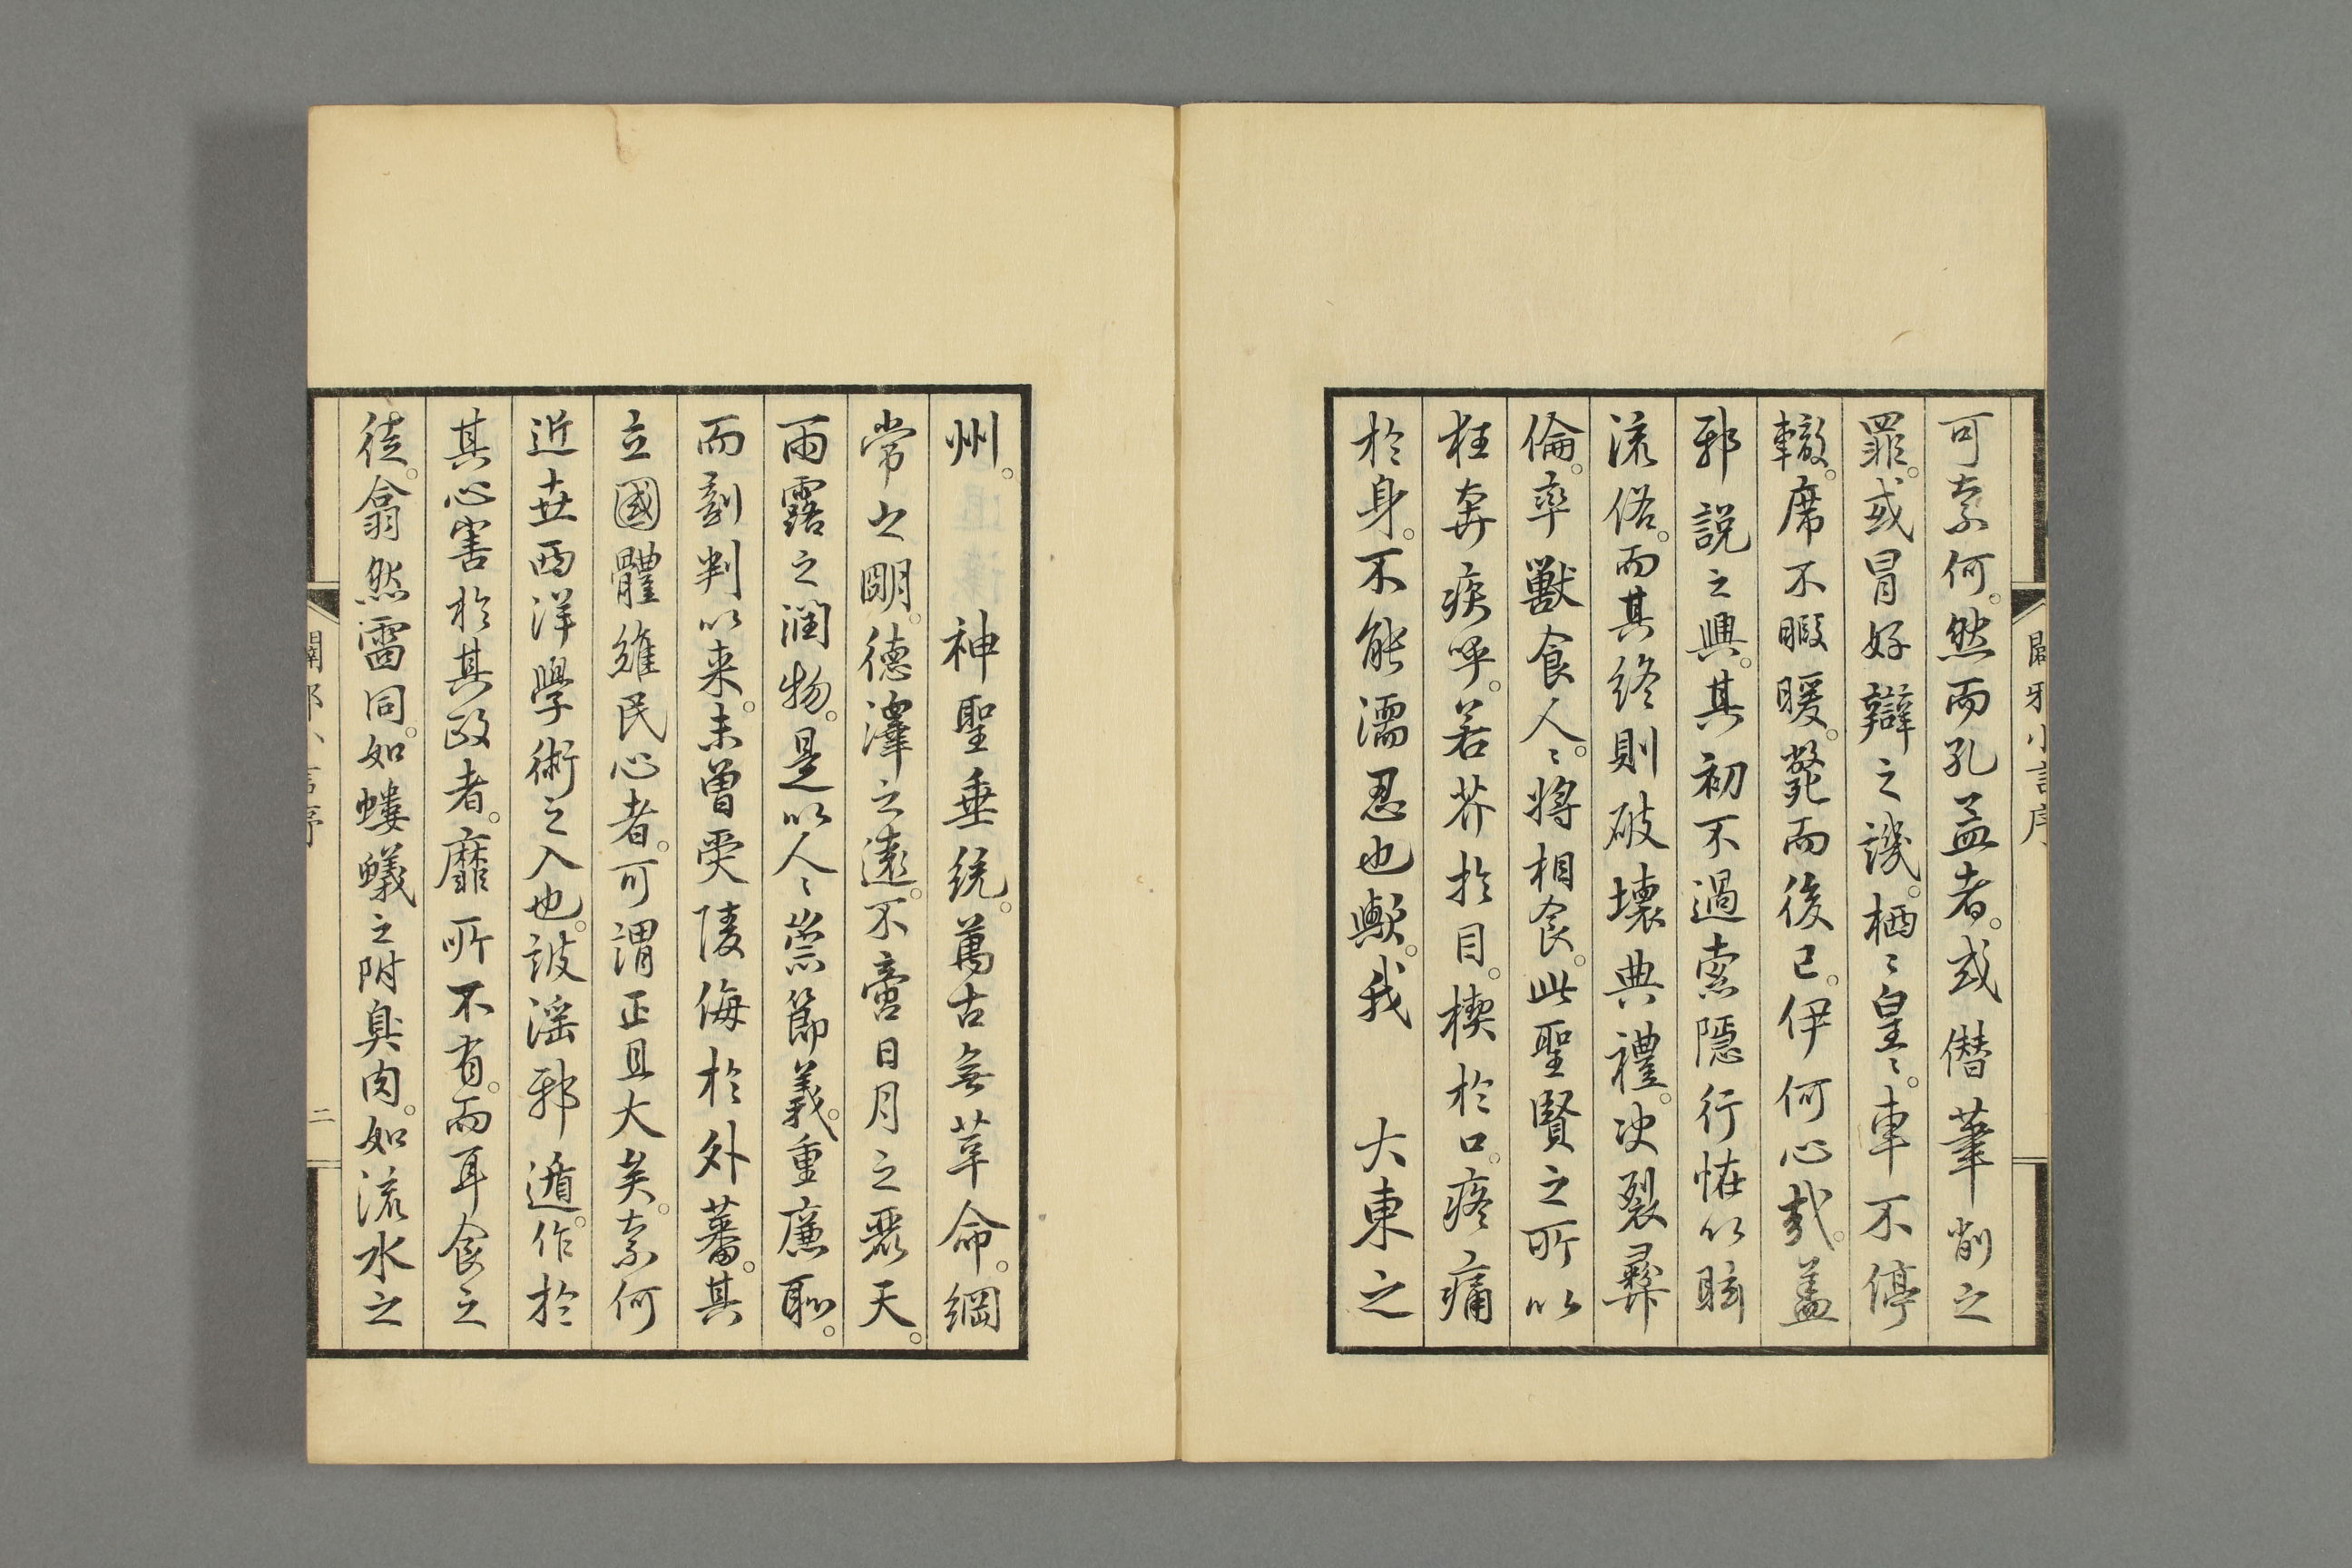 闢邪小言序
可奈何。然而孔孟者。或僭筆削之
罪。或冒好辯之譏。栖〻皇〻。車不停
轍。席不暇暖。斃而後已。伊何心哉。蓋
邪說之興。其初不過索隱行怪以眩
流俗。而其終則破壞典禮。決裂彝
倫。率獸食人〻。將相食。此聖賢之所以
狂奔疾呼。若芥於目。楔於口。疼痛
於身。不能濡忍也歟。我　大東之
州。　神聖垂統。萬古無革命。綱
常之明。德澤之遠。不啻日月之麗天。
雨露之潤物。是以人〻崇節義。重廉恥。
而剖判以来。未曾受陵侮於外蕃。其
立國體維民心者。可謂正且大矣。奈何
近世西洋學術之入也。詖淫邪遁。作於
其心害於其政者。靡所不有。而耳食之
徒。翕然雷同。如螻蟻之附臭肉。如流水之
闢邪小言序
二